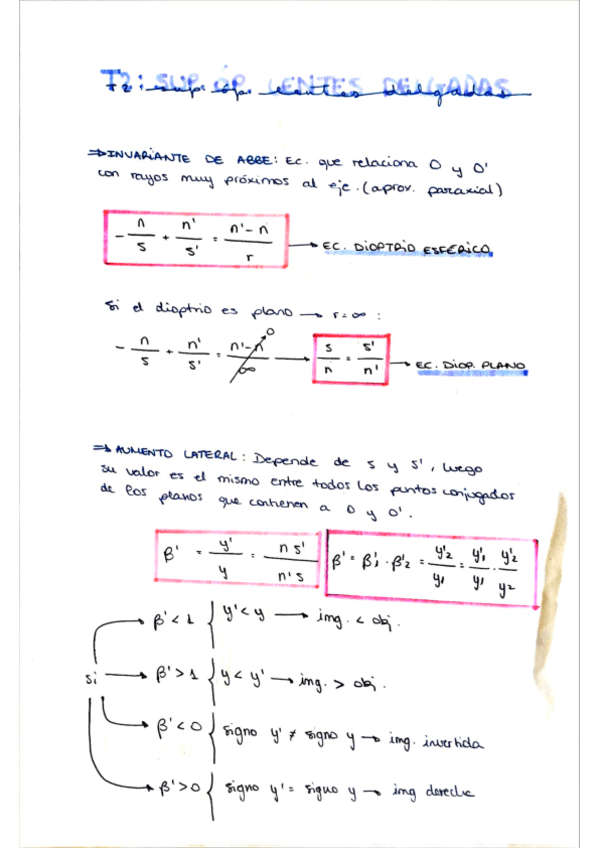 T2: SUP. ÓP. LENTES DELGADAS
⇒ INVARIANTE DE ABBE: Ec. que relaciona O y O'
con rayos muy próximos al eje. (aprox. paraxial)
- n/s + n'/s' = n'-n/r → EC. DIOPTRIO ESFÉRICO
Si el dioptrio es plano → r=∞ :
- n/s + n'/s' = n'-n/∞ 0 → s/n = s'/n' → EC. DIOP. PLANO
⇒ AUMENTO LATERAL: Depende de s y s', luego
su valor es el mismo entre todos los puntos conjugados
de los planos que contienen a O y O'.
β' = y'/y = n s'/n's β' = β'₁ · β'₂ = y'₂/y₁ = y'₁/y₁ · y'₂/y₂
β' < 1 { y' < y → img. < obj.
si β' > 1 { y < y' → img. > obj.
β' < 0 { signo y' ≠ signo y → img. invertida
β' > 0 { signo y' = signo y → img derecha